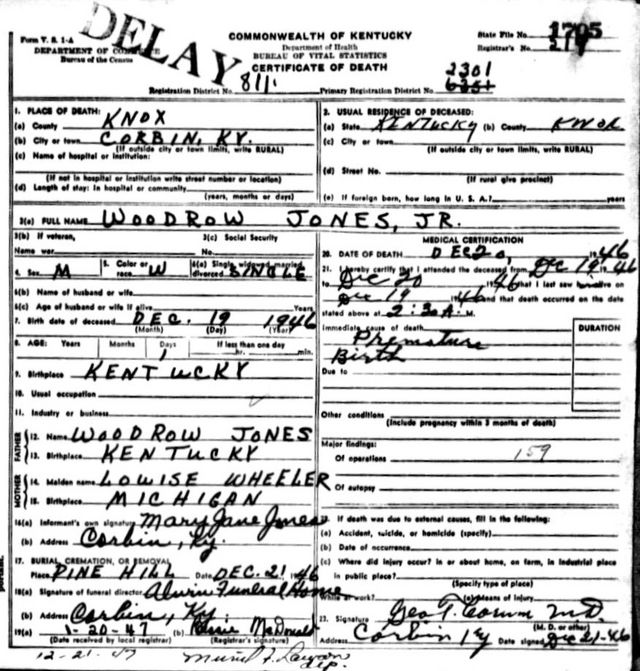 Form V. S. 1-A
DEPARTMENT OF COMMERCE
Bureau of the Census
DELAY
COMMONWEALTH OF KENTUCKY
Department of Health
BUREAU OF VITAL STATISTICS
CERTIFICATE OF DEATH
State File No. 1705
Registrar's No. 219
Registration District No. 811
Primary Registration District No. 2301
1. PLACE OF DEATH:
(a) County KNOX
(b) City or town CORBIN, KY.
(If outside city or town limits, write RURAL)
(c) Name of hospital or institution:
(If not in hospital or institution write street number or location)
(d) Length of stay: In hospital or community
(years, months or days)
2. USUAL RESIDENCE OF DECEASED:
(a) State KENTUCKY (b) County KNOX
(c) City or town
(If outside city or town limits, write RURAL)
(d) Street No.
(If rural give precinct)
(e) If foreign born, how long in U. S. A.? years
3(a) FULL NAME WOODROW JONES, JR.
3(b) If veteran,
Name war
3(c) Social Security
No.
4. Sex M
5. Color or race W
6(a) Single, widowed, married, divorced SINGLE
6(b) Name of husband or wife
6(c) Age of husband or wife if alive Years
7. Birth date of deceased DEC. 19 1946
(Month) (Day) (Year)
8. AGE: Years Months Days If less than one day
1 hr. min.
9. Birthplace KENTUCKY
10. Usual occupation
11. Industry or business
FATHER
12. Name WOODROW JONES
13. Birthplace KENTUCKY
MOTHER
14. Maiden name LOUISE WHEELER
15. Birthplace MICHIGAN
16(a) Informant's own signature Mary Jane Jones
(b) Address Corbin, Ky.
17. BURIAL, CREMATION, OR REMOVAL
Place PINE HILL Date DEC. 21 1946
18(a) Signature of funeral director Funeral Home
(b) Address Corbin, Ky.
19(a) 1-20-47 (b) McDonald
(Date received by local registrar) (Registrar's signature)
12-21-47
MEDICAL CERTIFICATION
20. DATE OF DEATH DEC 20, 1946
21. I hereby certify that I attended the deceased from Dec 19 1946
to Dec 20 1946 that I last saw alive on
Dec 19 1946 and that death occurred on the date
stated above at 2:30 A. M.
Immediate cause of death Premature
Birth
DURATION
Due to
Other conditions
(Include pregnancy within 3 months of death)
Major findings:
Of operations 159
Of autopsy
22. If death was due to external causes, fill in the following:
(a) Accident, suicide, or homicide (specify)
(b) Date of occurrence
(c) Where did injury occur? In or about home, on farm, in industrial place
in public place?
(Specify type of place)
While at work? (e) Means of injury
23. Signature Geo T. M.D.
(M. D. or other)
Address Corbin Ky Date signed Dec 21-46